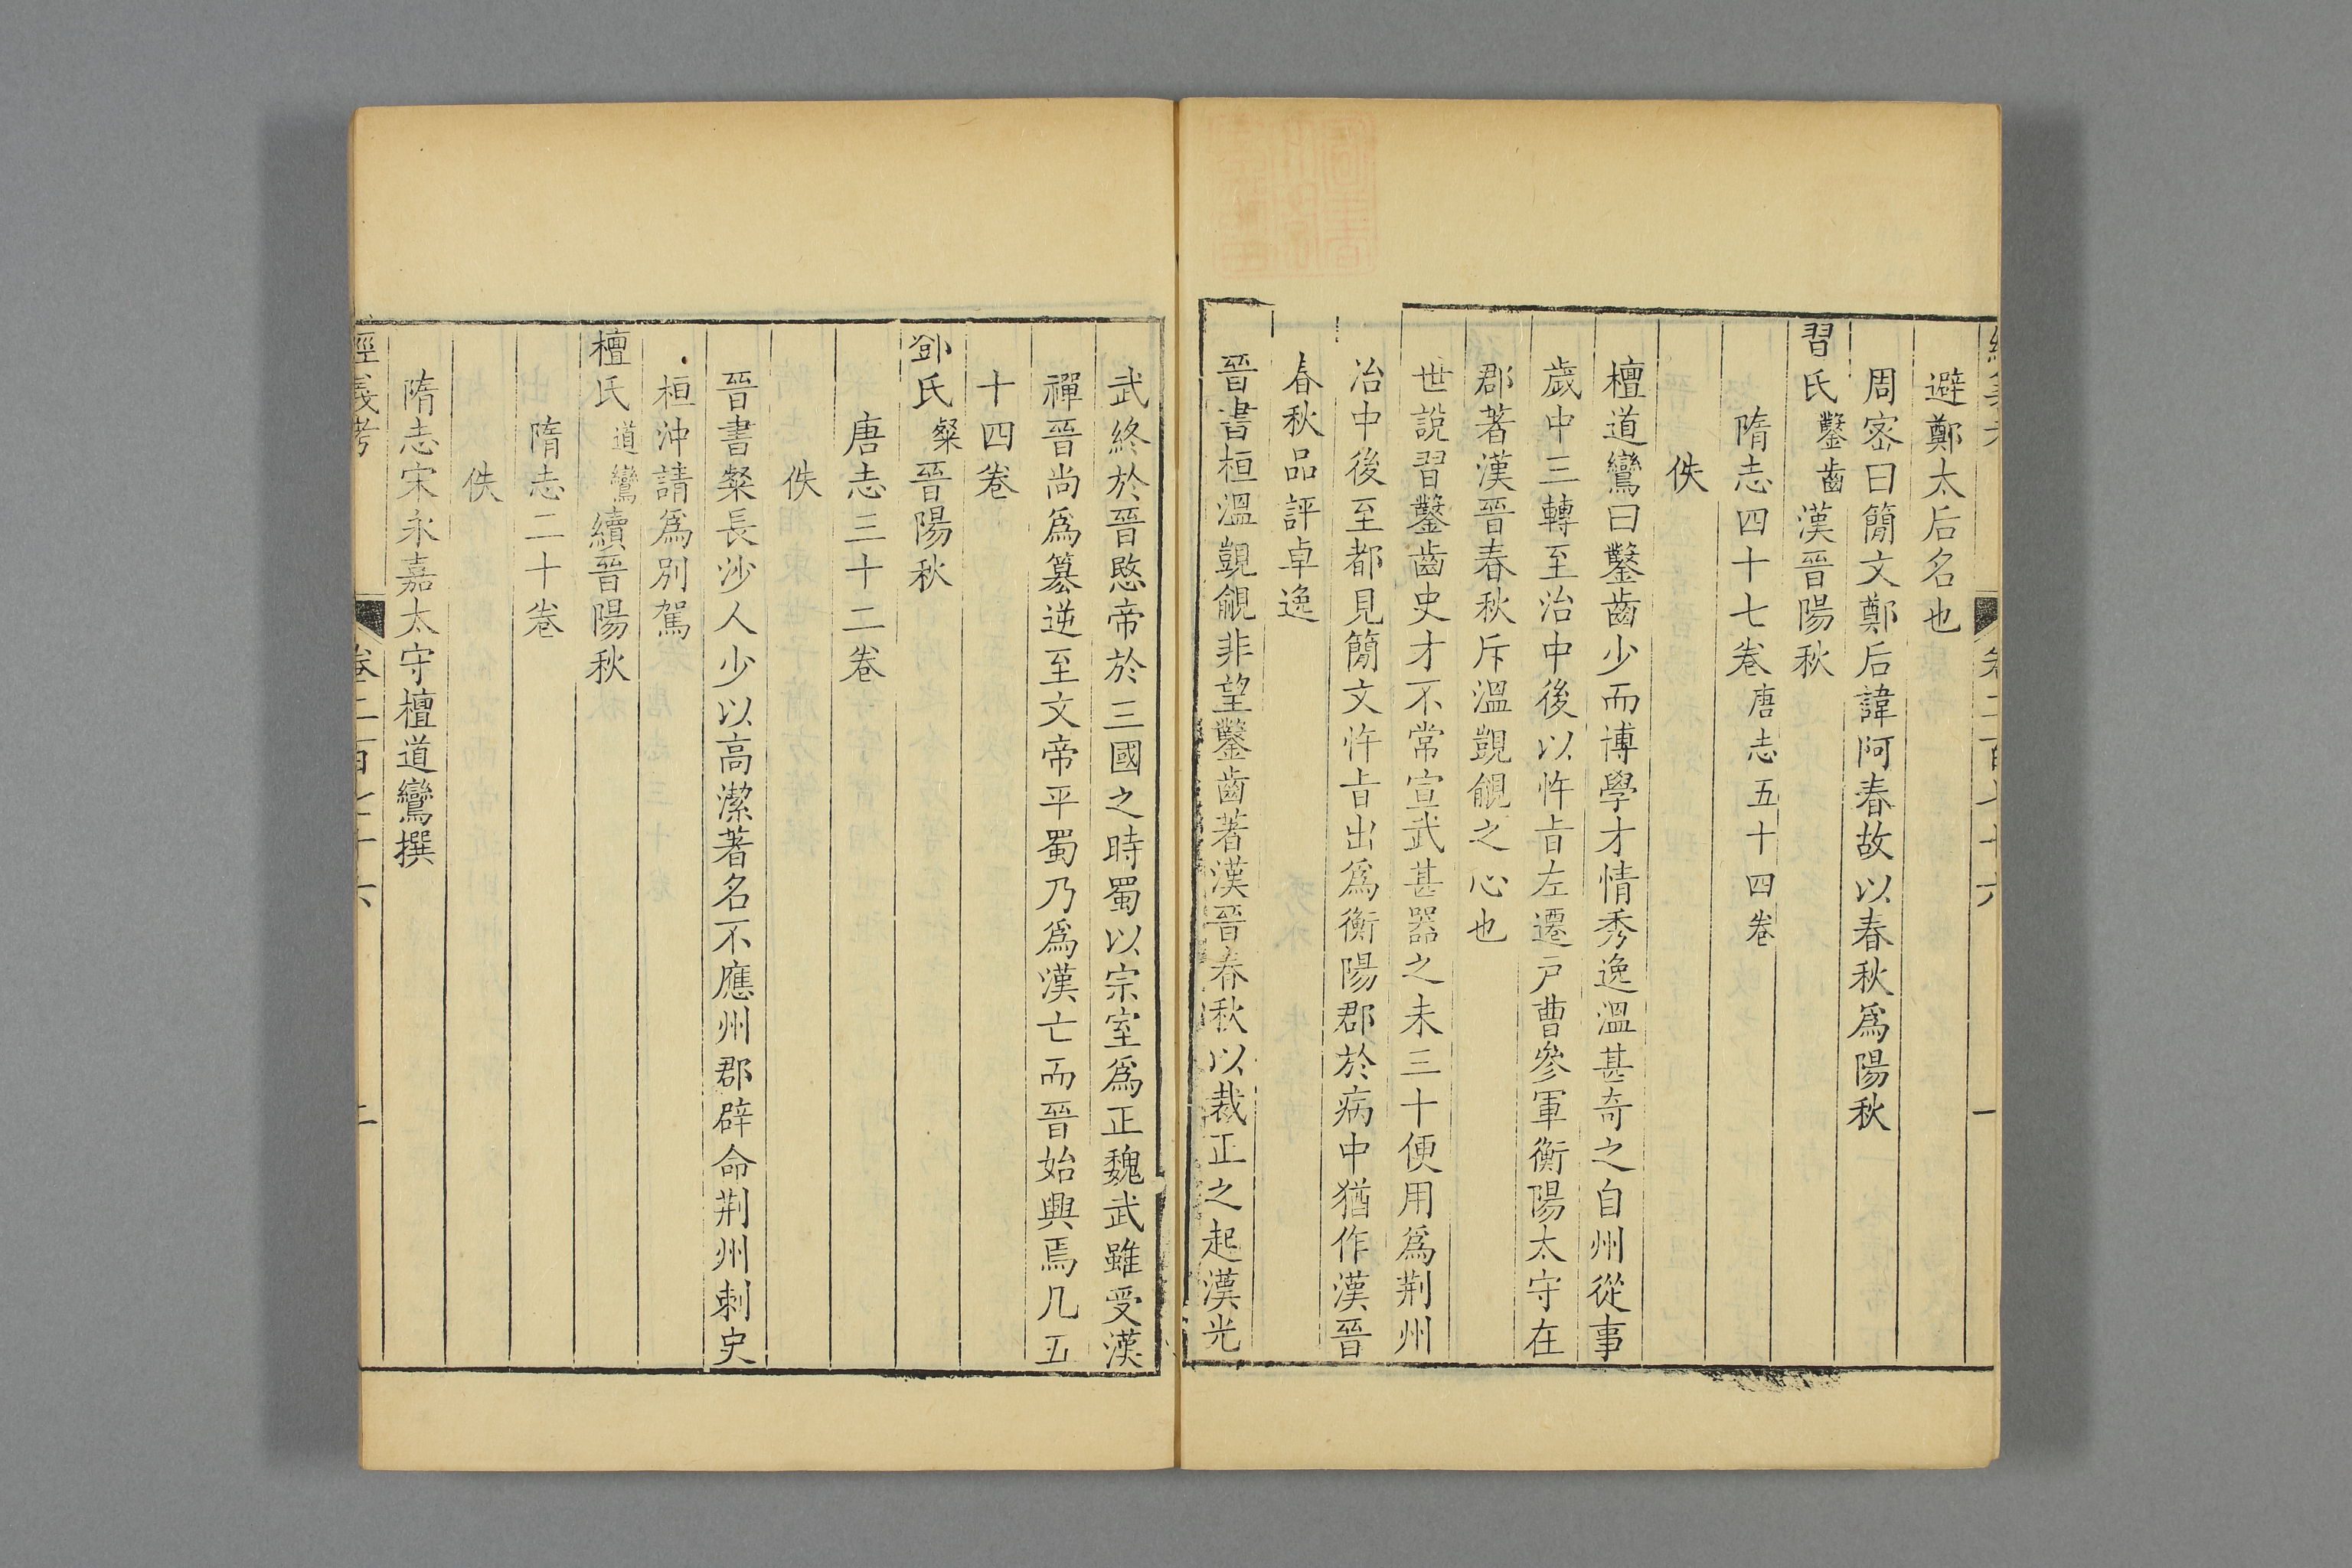 避鄭太后名也
周宻曰簡文鄭后諱阿春故以春秋爲陽秋
習氏鑿齒漢晉陽秋
隋志四十七卷唐志五十四卷
佚
檀道鸞曰鑿齒少而博學才情秀逸溫甚奇之自州從事
歲中三轉至治中後以忤㫖左遷戸曹參軍衡陽太守在
郡著漢晉春秋斥溫覬覦之心也
世說習鑿齒史才不常宣武甚器之未三十便用爲荆州
冶中後至都見簡文忤㫖出爲衡陽郡於病中猶作漢晉
春秋品評卓逸
晉書桓溫覬覦非望鑿齒著漢晉春秋以裁正之起漢光
武終於晉愍帝於三國之時蜀以宗室爲正魏武雖受漢
禪晉尚爲簒逆至文帝平蜀乃爲漢亡而晉始興焉凡五
十四卷
鄧氏粲晉陽秋
唐志三十二卷
佚
晉書粲長沙人少以高潔著名不應州郡辟命荆州刺史
桓沖請爲別駕
檀氏道鸞續晉陽秋
隋志二十卷
佚
隋志宋永嘉太守檀道鸞撰
經義考 卷二百七十六 二